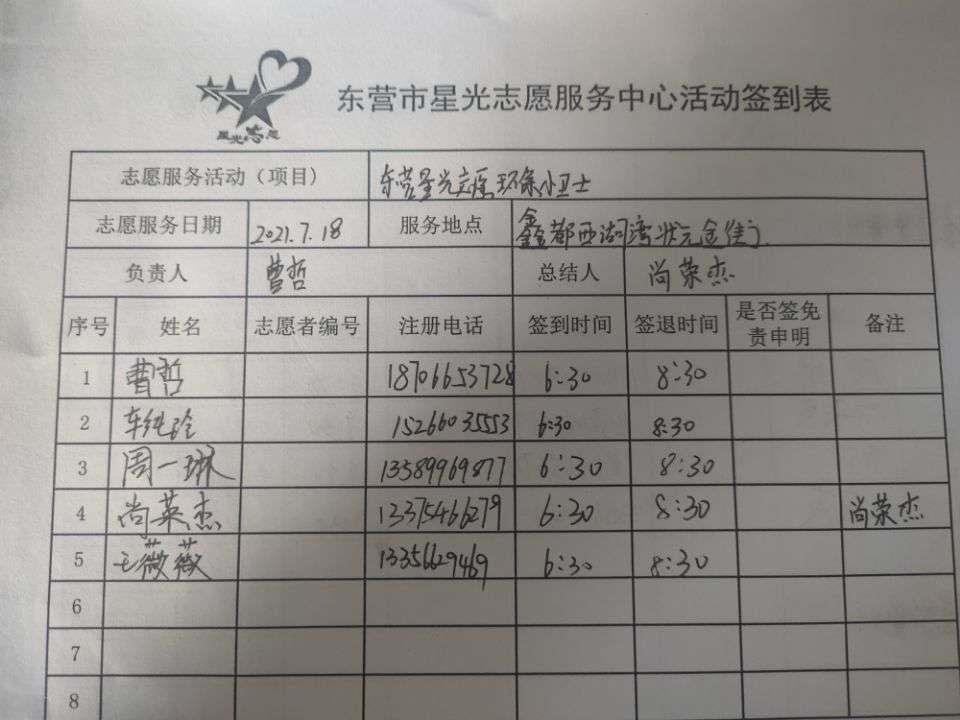 星光志愿
东营市星光志愿服务中心活动签到表
志愿服务活动（项目） 东营星光志愿环保小卫士
志愿服务日期 2021.7.18 服务地点 鑫都西湖湾状元金街
负责人 曹哲 总结人 尚荣杰
序号 姓名 志愿者编号 注册电话 签到时间 签退时间 是否签免责申明 备注
1 曹哲 18706653728 6:30 8:30
2 车纯玲 15266035553 6:30 8:30
3 周一琳 13589969877 6:30 8:30
4 尚英杰 13375466279 6:30 8:30 尚荣杰
5 王薇薇 13356629469 6:30 8:30
6
7
8